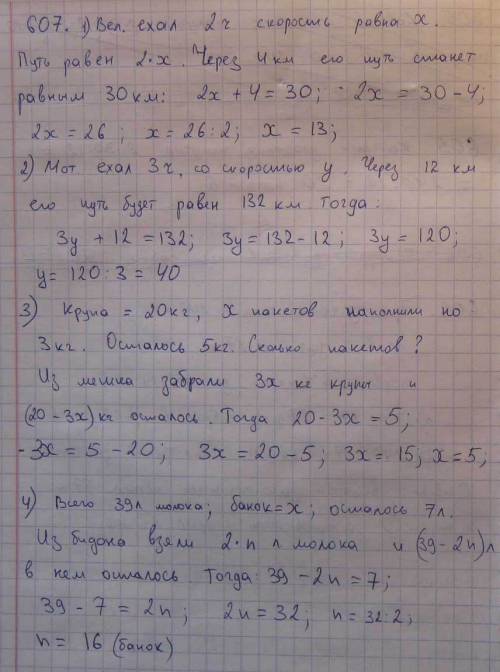 607. 1) Вел. ехал 2ч скорость равна x.
Путь равен 2·x. Через 4 км его путь станет
равным 30 км: 2x + 4 = 30; 2x = 30 - 4;
2x = 26; x = 26 : 2; x = 13;
2) Мот ехал 3ч, со скоростью y. Через 12 км
его путь будет равен 132 км Тогда:
3y + 12 = 132; 3y = 132 - 12; 3y = 120;
y = 120 : 3 = 40
3) Крупа = 20кг, x пакетов наполнили по
3 кг. Осталось 5кг. Сколько пакетов?
Из мешка забрали 3x кг крупы и
(20 - 3x) кг осталось. Тогда 20 - 3x = 5;
-3x = 5 - 20; 3x = 20 - 5; 3x = 15; x = 5;
4) Всего 39л молока; банок = x; осталось 7л.
Из бидона взяли 2·n л молока и (39 - 2n) л
в нем осталось Тогда: 39 - 2n = 7;
39 - 7 = 2n; 2n = 32; n = 32 : 2;
n = 16 (банок)